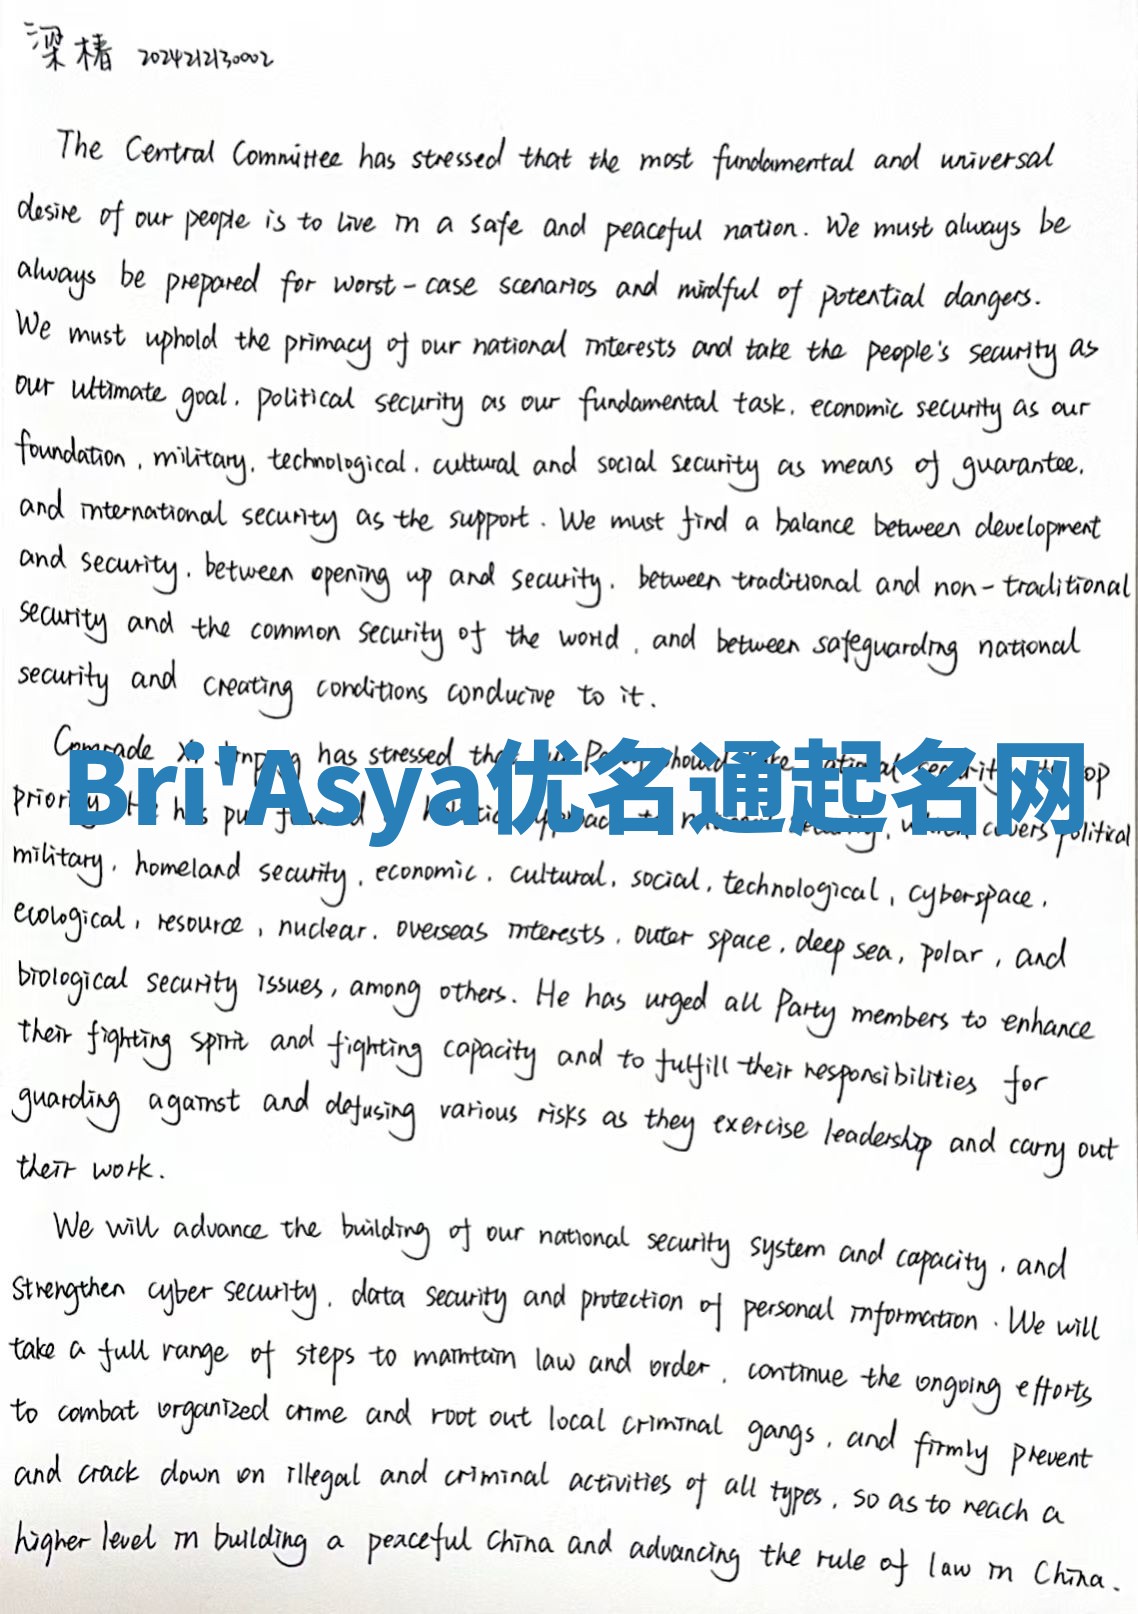 梁椿 2024212130002
The Central Committee has stressed that the most fundamental and universal
desire of our people is to live in a safe and peaceful nation. We must always be
always be prepared for worst-case scenarios and mindful of potential dangers.
We must uphold the primacy of our national interests and take the people's security as
our ultimate goal, political security as our fundamental task, economic security as our
foundation, military, technological, cultural and social security as means of guarantee,
and international security as the support. We must find a balance between development
and security, between opening up and security, between traditional and non-traditional
security and the common security of the world, and between safeguarding national
security and creating conditions conducive to it.
Comrade Xi Jinping has stressed that Party should national security top
Bri'Asya优名通起名网
priority. He has put forward a holistic approach to national security, which covers political
military, homeland security, economic, cultural, social, technological, cyberspace,
ecological, resource, nuclear, overseas interests, outer space, deep sea, polar, and
biological security issues, among others. He has urged all Party members to enhance
their fighting spirit and fighting capacity and to fulfill their responsibilities for
guarding against and defusing various risks as they exercise leadership and carry out
their work.
We will advance the building of our national security system and capacity, and
strengthen cyber security, data security and protection of personal information. We will
take a full range of steps to maintain law and order, continue the ongoing efforts
to combat organized crime and root out local criminal gangs, and firmly prevent
and crack down on illegal and criminal activities of all types, so as to reach a
higher level in building a peaceful China and advancing the rule of law in China.